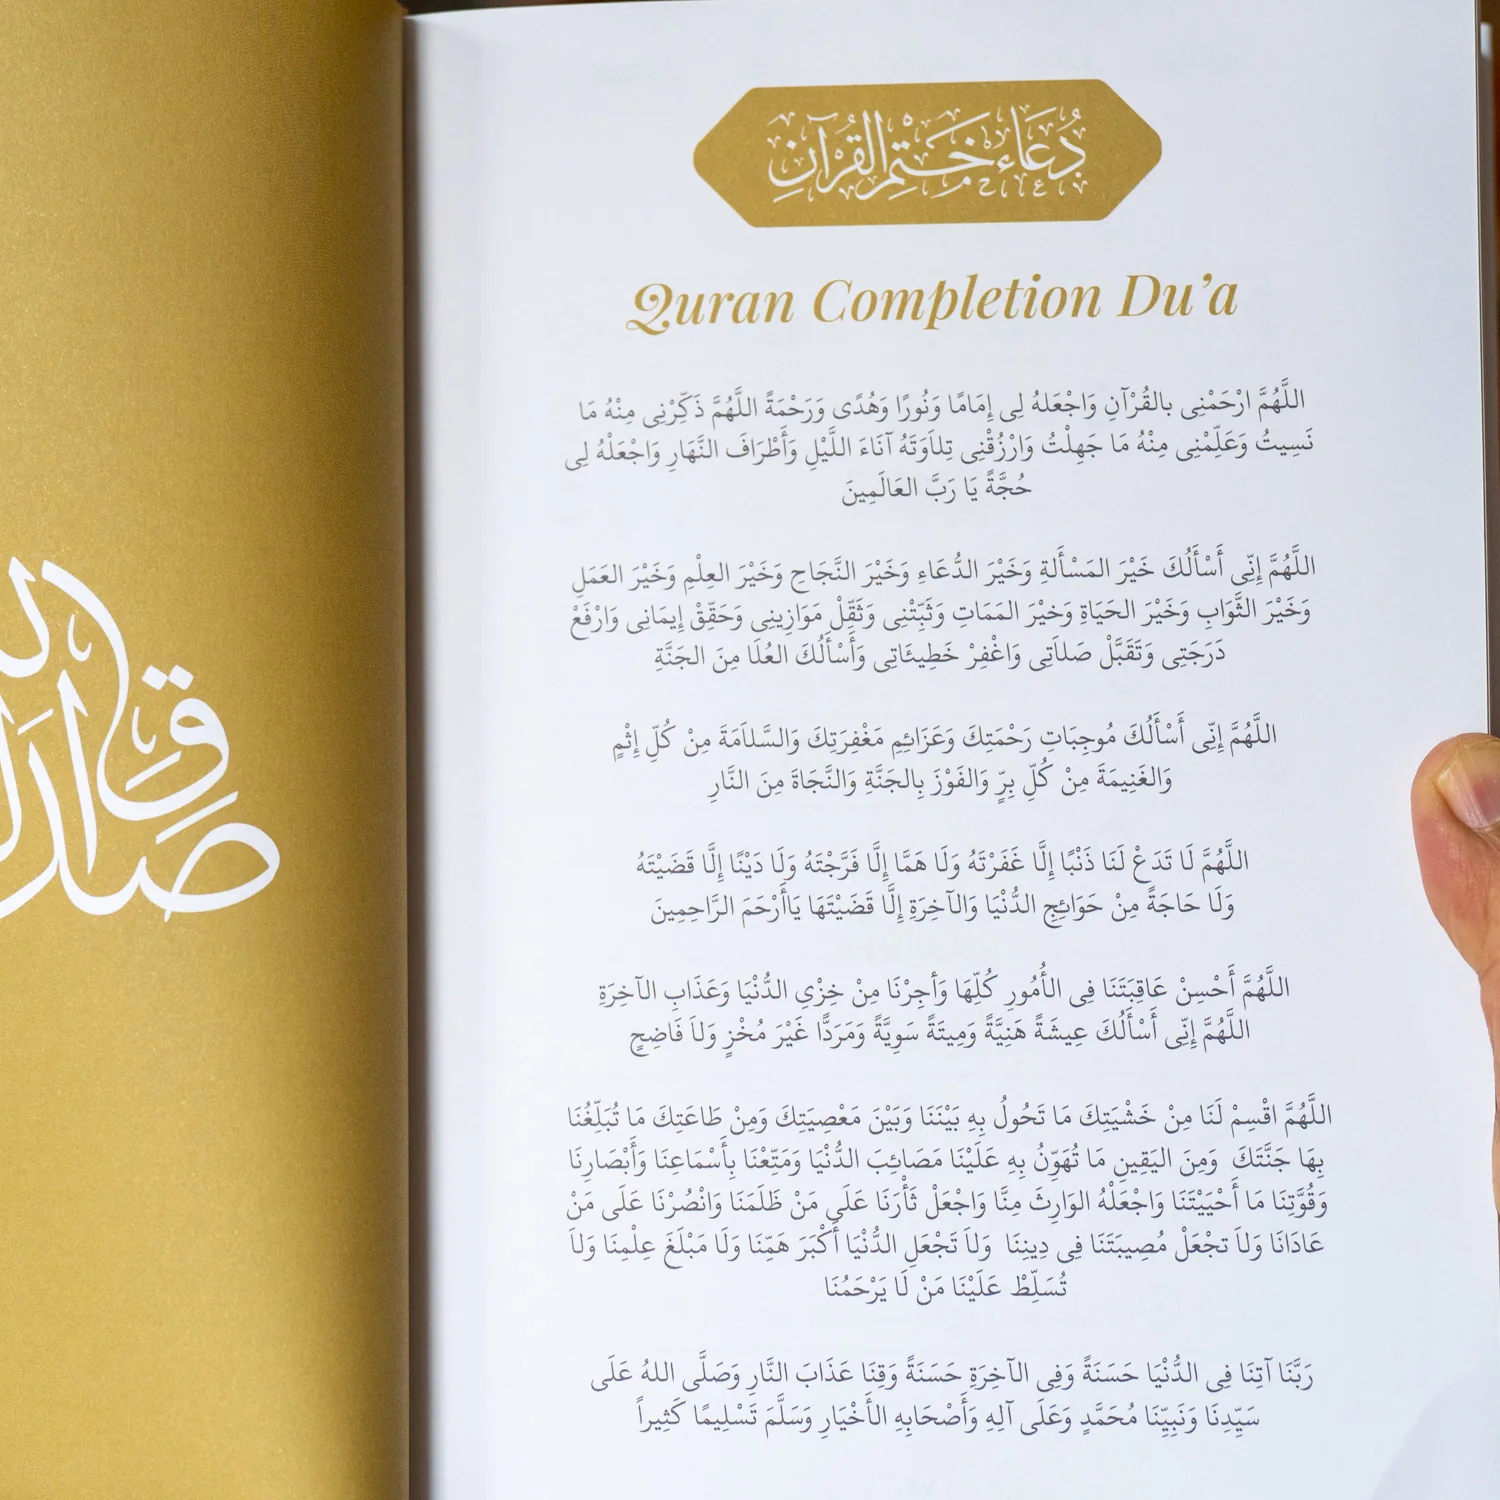 دُعَاء خَتْمِ القُرْآنِ
Quran Completion Du'a
اللَّهُمَّ ارْحَمْنِى بالقُرْآنِ وَاجْعَلهُ لِى إِمَامًا وَنُورًا وَهُدًى وَرَحْمَةً اللَّهُمَّ ذَكِّرْنِى مِنْهُ مَا
نَسِيتُ وَعَلِّمْنِى مِنْهُ مَا جَهِلْتُ وَارْزُقْنِى تِلاَوَتَهُ آنَاءَ اللَّيْلِ وَأَطْرَافَ النَّهَارِ وَاجْعَلْهُ لِى
حُجَّةً يَا رَبَّ العَالَمِينَ
اللَّهُمَّ إِنِّى أَسْأَلُكَ خَيْرَ المَسْأَلةِ وَخَيْرَ الدُّعَاءِ وَخَيْرَ النَّجَاحِ وَخَيْرَ العِلْمِ وَخَيْرَ العَمَلِ
وَخَيْرَ الثَّوَابِ وَخَيْرَ الحَيَاةِ وَخيْرَ المَمَاتِ وَثَبِّتْنِى وَثَقِّلْ مَوَازِينِى وَحَقِّقْ إِيمَانِى وَارْفَعْ
دَرَجَتِى وَتَقَبَّلْ صَلاَتِى وَاغْفِرْ خَطِيئَاتِى وَأَسْأَلُكَ العُلَا مِنَ الجَنَّةِ
اللَّهُمَّ إِنِّى أَسْأَلُكَ مُوجِبَاتِ رَحْمَتِكَ وَعَزَائِمِ مَغْفِرَتِكَ وَالسَّلاَمَةَ مِنْ كُلِّ إِثْمٍ
وَالغَنِيمَةَ مِنْ كُلِّ بِرٍّ وَالفَوْزَ بِالجَنَّةِ وَالنَّجَاةَ مِنَ النَّارِ
اللَّهُمَّ لَا تَدَعْ لَنَا ذَنْبًا إِلَّا غَفَرْتَهُ وَلَا هَمًّا إِلَّا فَرَّجْتَهُ وَلَا دَيْنًا إِلَّا قَضَيْتَهُ
وَلَا حَاجَةً مِنْ حَوَائِجِ الدُّنْيَا وَالآخِرَةِ إِلَّا قَضَيْتَهَا يَاأَرْحَمَ الرَّاحِمِينَ
اللَّهُمَّ أَحْسِنْ عَاقِبَتَنَا فِى الأُمُورِ كُلِّهَا وَأجِرْنَا مِنْ خِزْىِ الدُّنْيَا وَعَذَابِ الآخِرَةِ
اللَّهُمَّ إِنِّى أَسْأَلُكَ عِيشَةً هَنِيَّةً وَمِيتَةً سَوِيَّةً وَمَرَدًّا غَيْرَ مُخْزٍ وَلاَ فَاضِحٍ
اللَّهُمَّ اقْسِمْ لَنَا مِنْ خَشْيَتِكَ مَا تَحُولُ بِهِ بَيْنَنَا وَبَيْنَ مَعْصِيَتِكَ وَمِنْ طَاعَتِكَ مَا تُبَلِّغُنَا
بِهَا جَنَّتَكَ وَمِنَ اليَقِينِ مَا تُهَوِّنُ بِهِ عَلَيْنَا مَصَائِبَ الدُّنْيَا وَمَتِّعْنَا بِأَسْمَاعِنَا وَأَبْصَارِنَا
وَقُوَّتِنَا مَا أَحْيَيْتَنَا وَاجْعَلْهُ الوَارِثَ مِنَّا وَاجْعَلْ ثَأْرَنَا عَلَى مَنْ ظَلَمَنَا وَانْصُرْنَا عَلَى مَنْ
عَادَانَا وَلاَ تجْعَلْ مُصِيبَتَنَا فِى دِينِنَا وَلاَ تَجْعَلِ الدُّنْيَا أَكْبَرَ هَمِّنَا وَلَا مَبْلَغَ عِلْمِنَا وَلاَ
تُسَلِّطْ عَلَيْنَا مَنْ لَا يَرْحَمُنَا
رَبَّنَا آتِنَا فِى الدُّنْيَا حَسَنَةً وَفِى الآخِرَةِ حَسَنَةً وَقِنَا عَذَابَ النَّارِ وَصَلَّى اللهُ عَلَى
سَيِّدِنَا وَنَبِيِّنَا مُحَمَّدٍ وَعَلَى آلِهِ وَأَصْحَابِهِ الأَخْيَارِ وَسَلَّمَ تَسْلِيمًا كَثِيراً